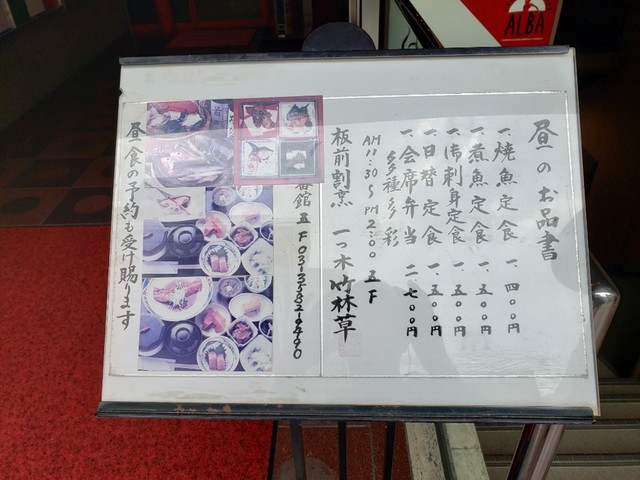 昼のお品書
一、焼魚定食 一、四〇〇円
一、煮魚定食 一、五〇〇円
一、御刺身定食 一、五〇〇円
一、日替定食 一、五〇〇円
一、会席弁当 二、七〇〇円
多種多彩
AM11:30〜PM2:00 五F
板前割烹 一ツ木竹林草
番館 五F 03-3582-9490
昼食の予約も受け賜ります
ALBA